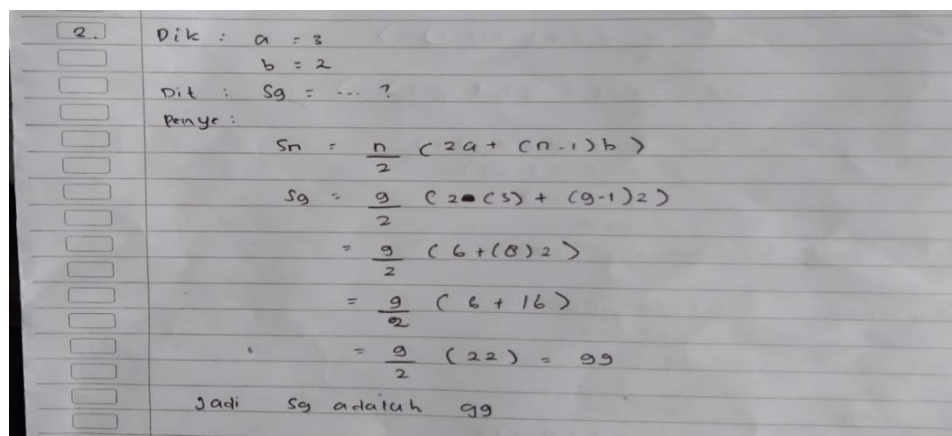 2. Dik : a = 3
b = 2
Dit : S9 = ... ?
Penye :
Sn = n/2 (2a + (n-1)b)
S9 = 9/2 (2 (3) + (9-1)2)
= 9/2 (6+(8)2)
= 9/2 (6 + 16)
= 9/2 (22) = 99
Jadi S9 adalah 99